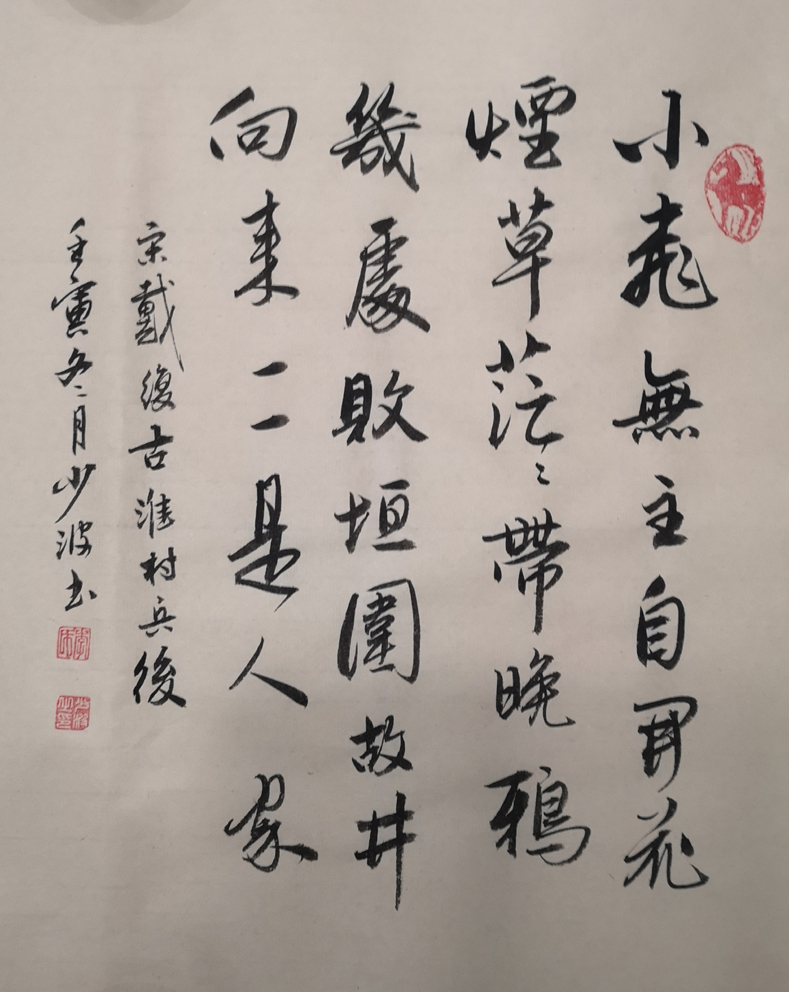 小桃無主自開花
煙草茫〻帶晚鴉
幾處敗垣圍故井
向来一一是人家
宋戴復古淮村兵後
壬寅冬月少波书